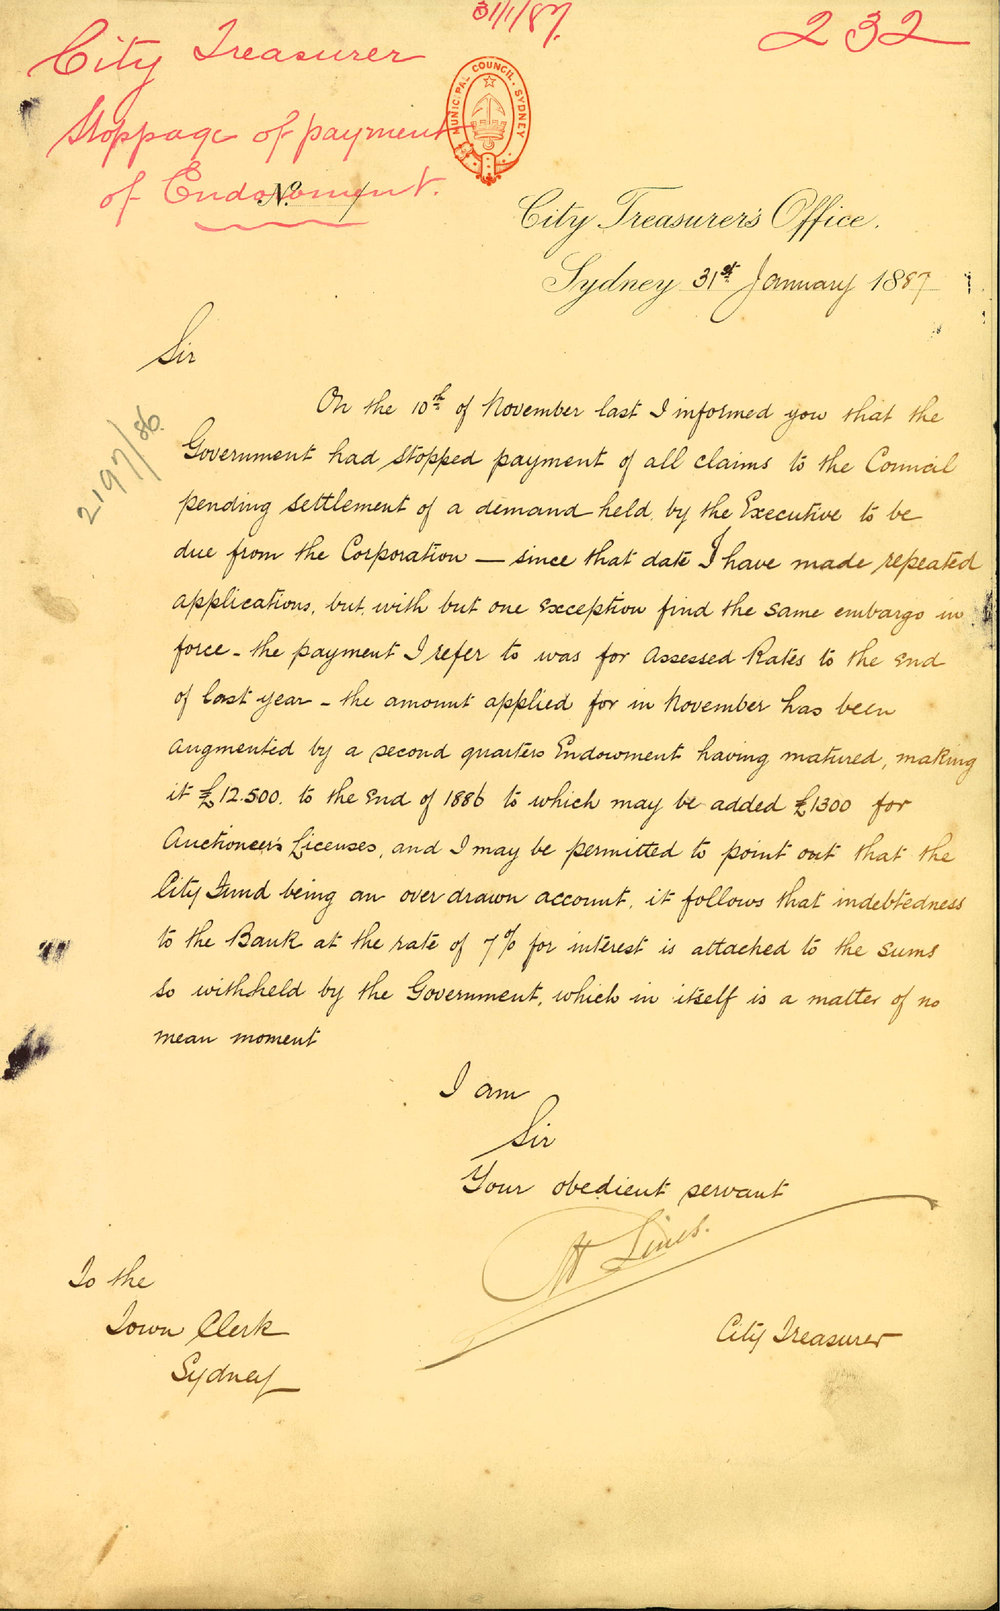 31/1/87.
232
City Treasurer
Stoppage of payment
of Endowment.
MUNICIPAL COUNCIL. SYDNEY
No.
City Treasurer's Office.
Sydney 31st January 1887
2197/86.
Sir
On the 10th of November last I informed you that the
Government had stopped payment of all claims to the Council
pending settlement of a demand held by the Executive to be
due from the Corporation — since that date I have made repeated
applications, but with but one exception find the same embargo in
force – the payment I refer to was for Assessed Rates to the end
of last year – the amount applied for in November has been
augmented by a second quarters Endowment having matured, making
it £12.500. to the end of 1886 to which may be added £1300 for
Auctioneer's Licenses, and I may be permitted to point out that the
City Fund being an over drawn account, it follows that indebtedness
to the Bank at the rate of 7% for interest is attached to the sums
so withheld by the Government, which in itself is a matter of no
mean moment
I am
Sir
Your obedient servant
Lines.
City Treasurer
To the
Town Clerk
Sydney